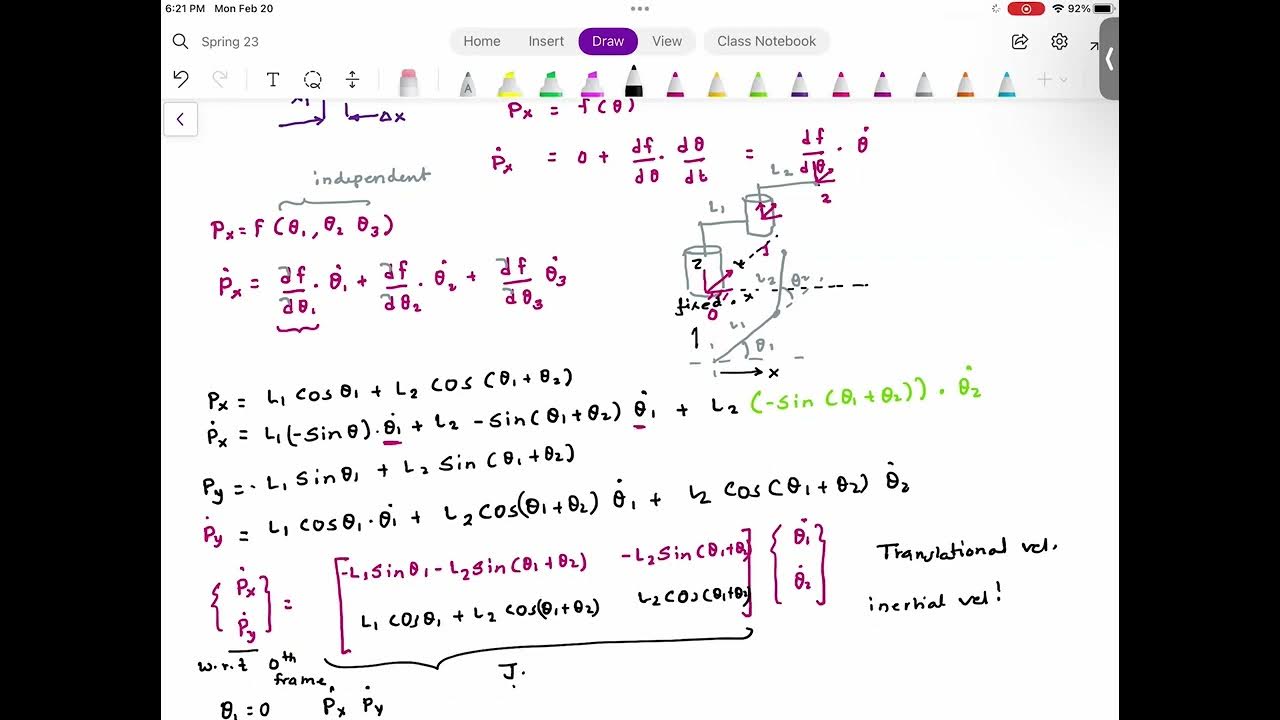 6:21 PM Mon Feb 20
92%
Spring 23
Home Insert Draw View Class Notebook
T
A
Δx
Pₓ = f(θ)
Ṗₓ = 0 + df/dθ · dθ/dt = df/dθ · θ̇
independent
Pₓ = f(θ₁, θ₂ θ₃)
Ṗₓ = ∂f/∂θ₁ · θ̇₁ + ∂f/∂θ₂ · θ̇₂ + ∂f/∂θ₃ θ̇₃
L₂
2
L₁
1
z
x
fixed
0
L₂
θ₂
L₁
θ₁
x
Pₓ = L₁ cosθ₁ + L₂ cos(θ₁+θ₂)
Ṗₓ = L₁(-sinθ)·θ̇₁ + L₂ -sin(θ₁+θ₂) θ̇₁ + L₂ (-sin(θ₁+θ₂))·θ̇₂
Py = L₁ sinθ₁ + L₂ sin(θ₁+θ₂)
Ṗy = L₁ cosθ₁·θ̇₁ + L₂cos(θ₁+θ₂) θ̇₁ + L₂ cos(θ₁+θ₂) θ̇₂
{Ṗₓ Ṗy} = [-L₁sinθ₁-L₂sin(θ₁+θ₂) -L₂sin(θ₁+θ₂)] {θ̇₁ θ̇₂} Translational vel.
L₁ cosθ₁ + L₂ cos(θ₁+θ₂) L₂cos(θ₁+θ₂) inertial vel!
w.r.t 0th
frame
J.
θ₁ = 0 Ṗₓ Ṗy